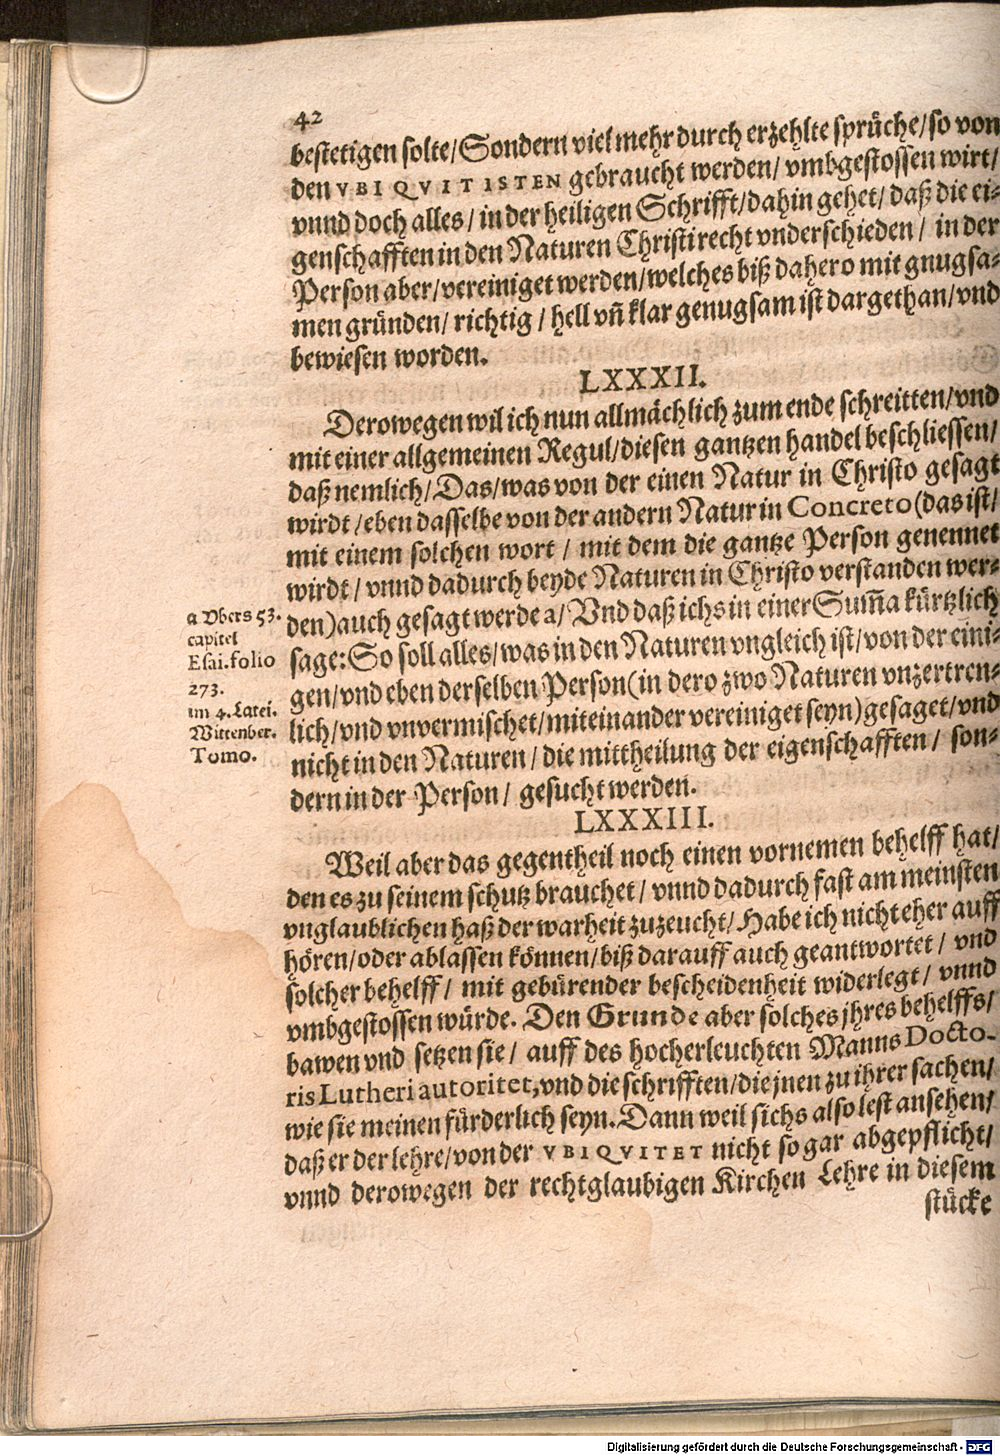 42
bestetigen solte/Sondern viel mehr durch erzehlte sprüche/so von
den VBIQVITISTEN gebraucht werden/ vmbgestossen wirt/
vnnd doch alles/ in der heiligen Schrifft/dahin gehet/ daß die ei⸗
genschafften in den Naturen Christi recht vnderschieden/ in der
Person aber/vereiniget werden/welches biß dahero mit gnugsa⸗
men gründen/ richtig/ hell vñ klar genugsam ist dargethan/vnd
bewiesen worden.
LXXXII.
Derowegen wil ich nun allmächlich zum ende schreitten/vnd
mit einer allgemeinen Regul/diesen gantzen handel beschliessen/
daß nemlich/Das/was von der einen Natur in Christo gesagt
wirdt/eben dasselbe von der andern Natur in Concreto(das ist/
mit einem solchen wort/ mit dem die gantze Person genennet
wirdt/ vnnd dadurch beyde Naturen in Christo verstanden wer⸗
den)auch gesagt werde a/ Vnd daß ichs in einer Sum̃a kürtzlich
sage: So soll alles/was in den Naturen vngleich ist/von der eini⸗
gen/vnd eben derselben Person(in dero zwo Naturen vnzertren⸗
lich/vnd vnvermischet/miteinander vereiniget seyn)gesaget/vnd
nicht in den Naturen/ die mittheilung der eigenschafften/ son⸗
dern in der Person/ gesucht werden.
a Vbers 53.
capitel
Esai. folio
273.
im 4. Latei.
Wittenber.
Tomo.
LXXXIII.
Weil aber das gegentheil noch einen vornemen behelff hat/
den es zu seinem schutz brauchet/ vnnd dadurch fast am meinsten
vnglaublichen haß der warheit zuzeucht/Habe ich nicht eher auff
hören/oder ablassen können/biß darauff auch geantwortet/ vnd
solcher behelff/ mit gebürender bescheidenheit widerlegt/ vnnd
vmbgestossen würde. Den Grunde aber solches jhres behelffs/
bawen vnd setzen sie/ auff des hocherleuchten Manns Docto-
ris Lutheri autoritet,vnd die schrifften/die jnen zu ihrer sachen/
wie sie meinen fürderlich seyn. Dann weil sichs also lest ansehen/
daß er der lehre/von der VBIQVITET nicht so gar abgepflicht/
vnnd derowegen der rechtglaubigen Kirchen Lehre in diesem
stücke
Digitalisierung gefördert durch die Deutsche Forschungsgemeinschaft - DFG